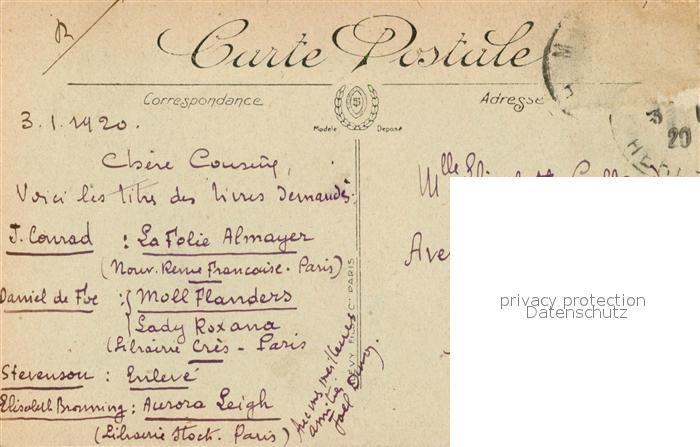 Carte Postale
Correspondance
Adresse
Modèle Déposé
5
20
3.1.1920.
Chère Cousine,
Voici les titres des livres demandés:
J. Conrad : La Folie Almayer
(Nouv. Revue Française - Paris)
Daniel de Foe : Moll Flanders
Lady Roxana
(Librairie Crès - Paris
Stevenson : Enlevé
Elisabeth Browning : Aurora Leigh
(Librairie Stock. Paris)
Avec mes meilleures
amitiés
LEVY FILS & Cie PARIS
Mlle
Ave
privacy protection
Datenschutz